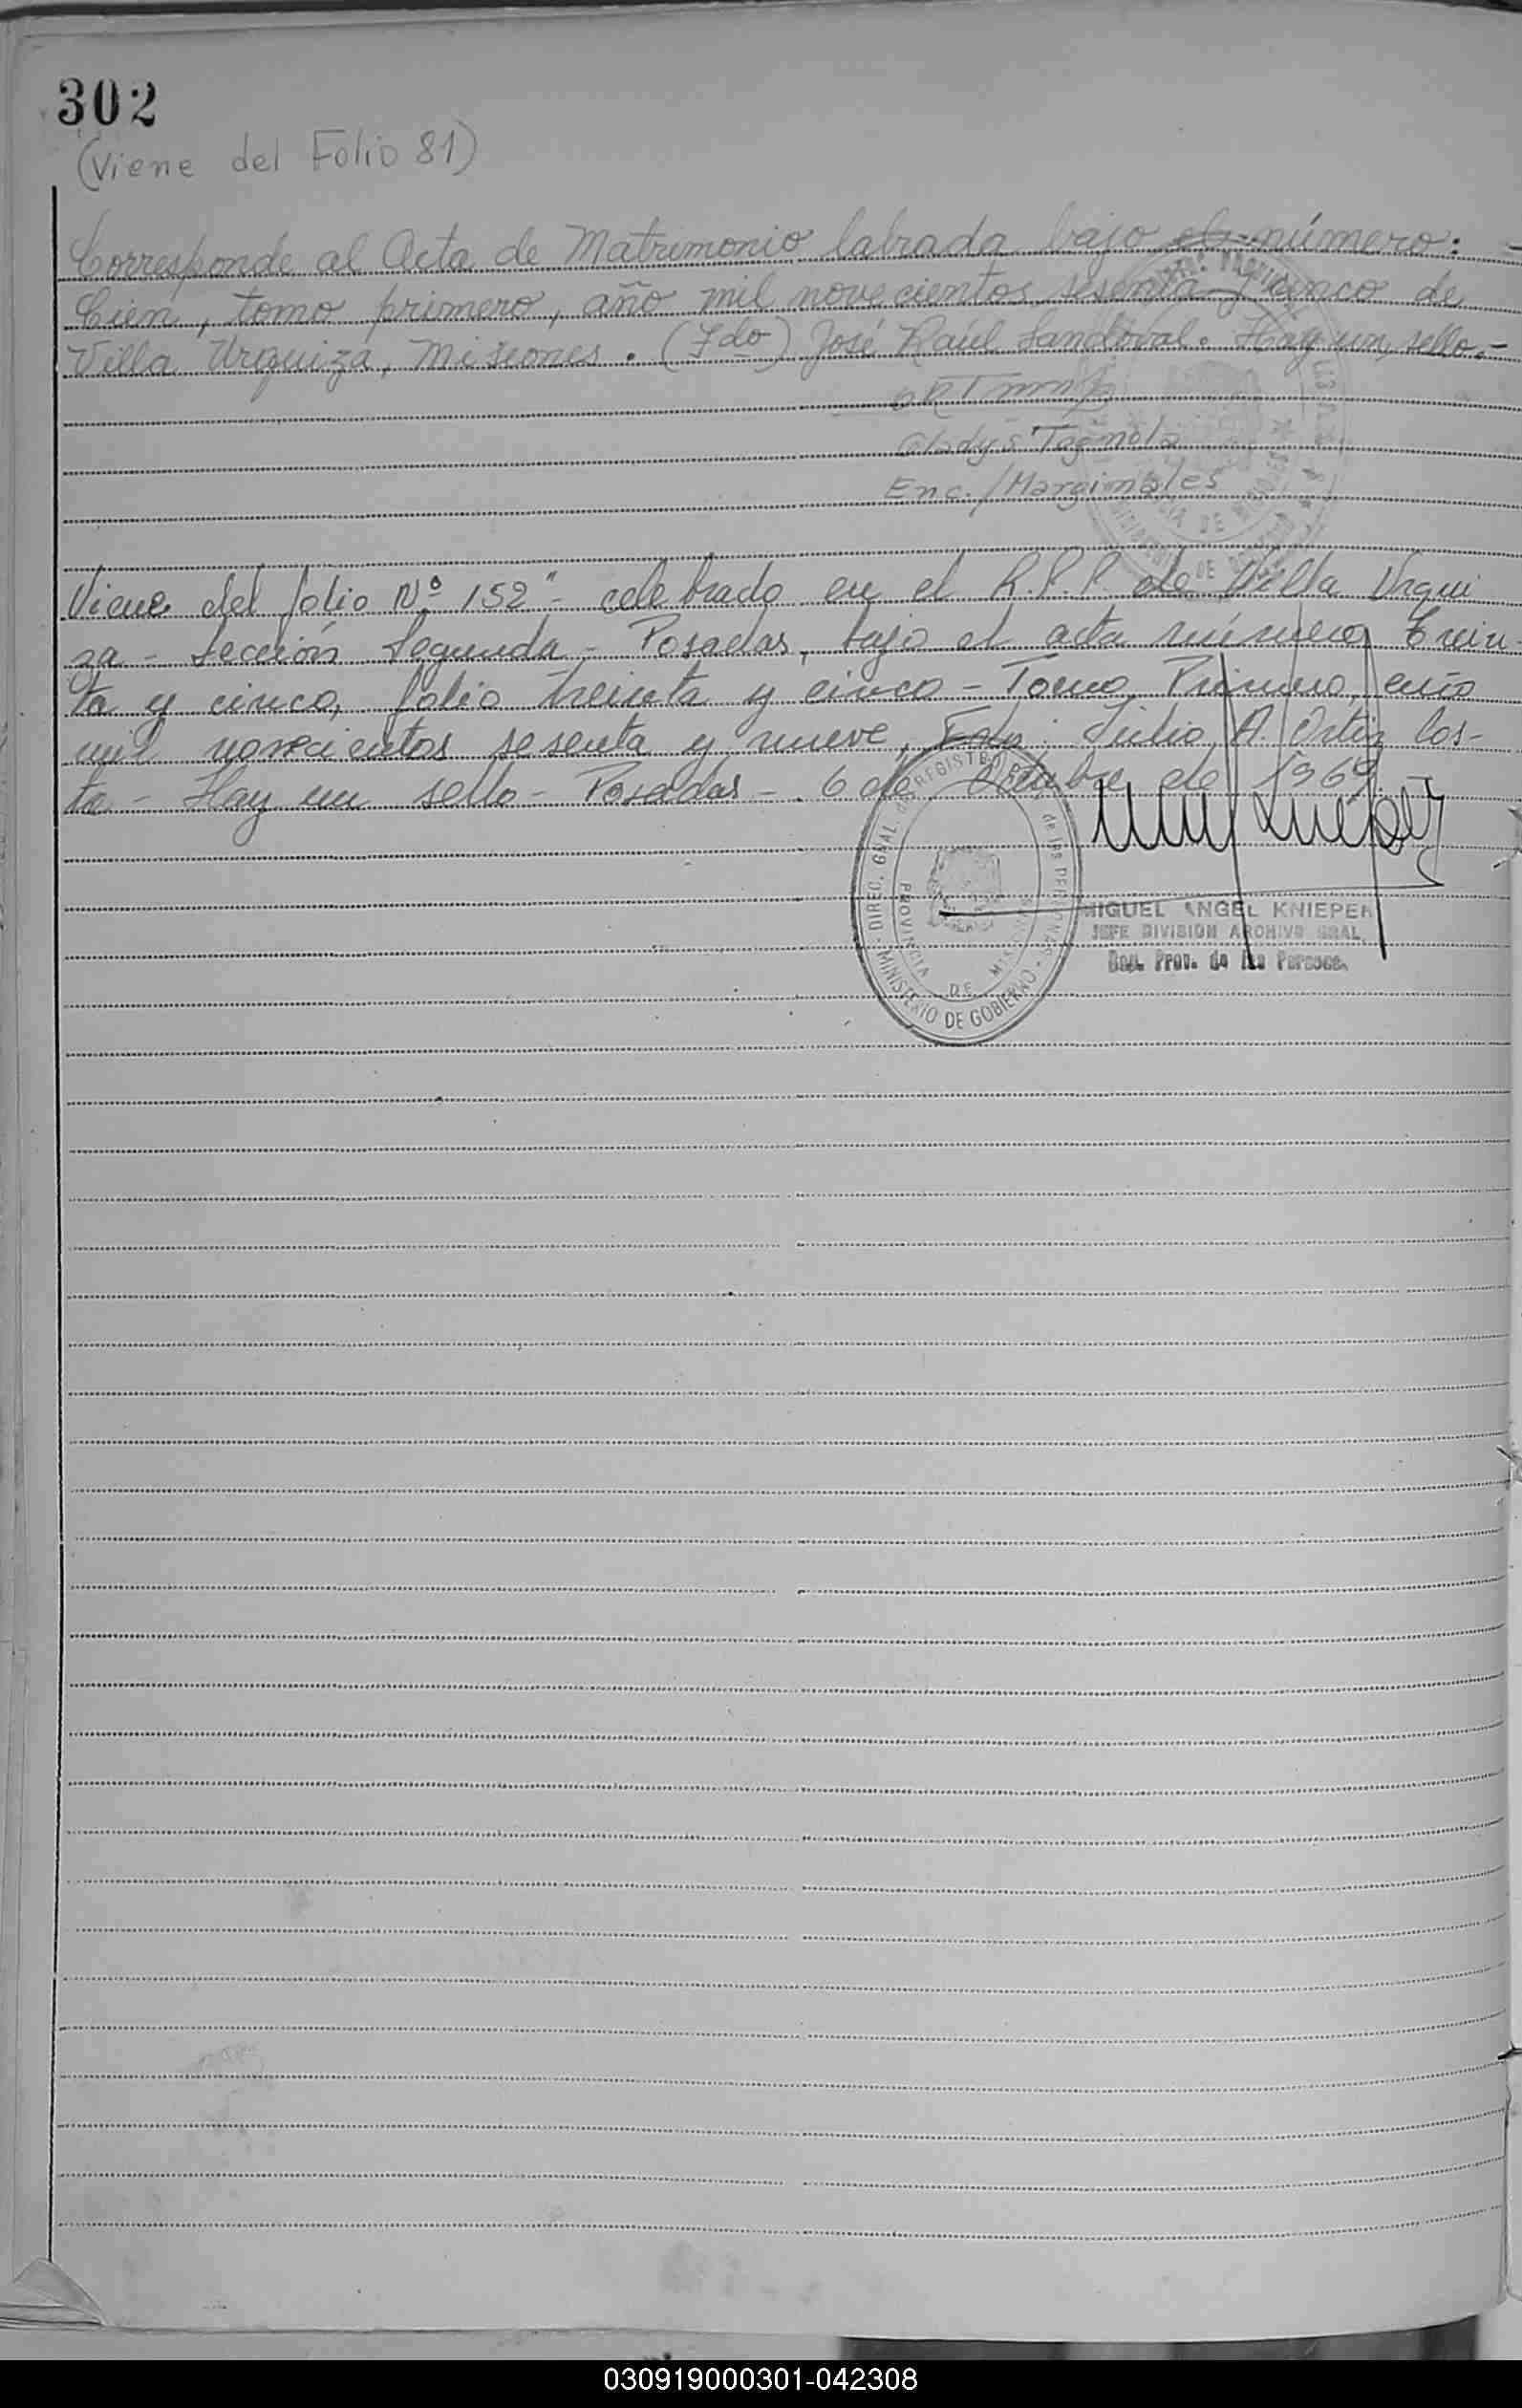 302
(Viene del Folio 81)
Corresponde al Acta de Matrimonio labrada bajo el número:
Cien, tomo primero, año mil novecientos sesenta y cinco de
Villa Urquiza, Misiones. (Fdo) José Raúl Sandoval. Hay un sello.-
Gladys
Enc./Marginales
Viene del folio Nº 152"- celebrado en el R.P.P. de Villa Urqui
za - Sección Segunda - Posadas, bajo el acta número Trein-
ta y cinco, folio treinta y cinco - Tomo Primero, año
mil novecientos sesenta y nueve, Julio A. Ortiz Cos-
ta - Hay un sello - Posadas - 6 de de 1969
DIREC. GRAL. REGISTRO de las
PROVINCIA DE MISIONES
MINISTERIO DE GOBIERNO
MIGUEL ANGEL KNIEPER
JEFE DIVISION ARCHIVO GRAL.
Prov. de las Personas.
030919000301-042308